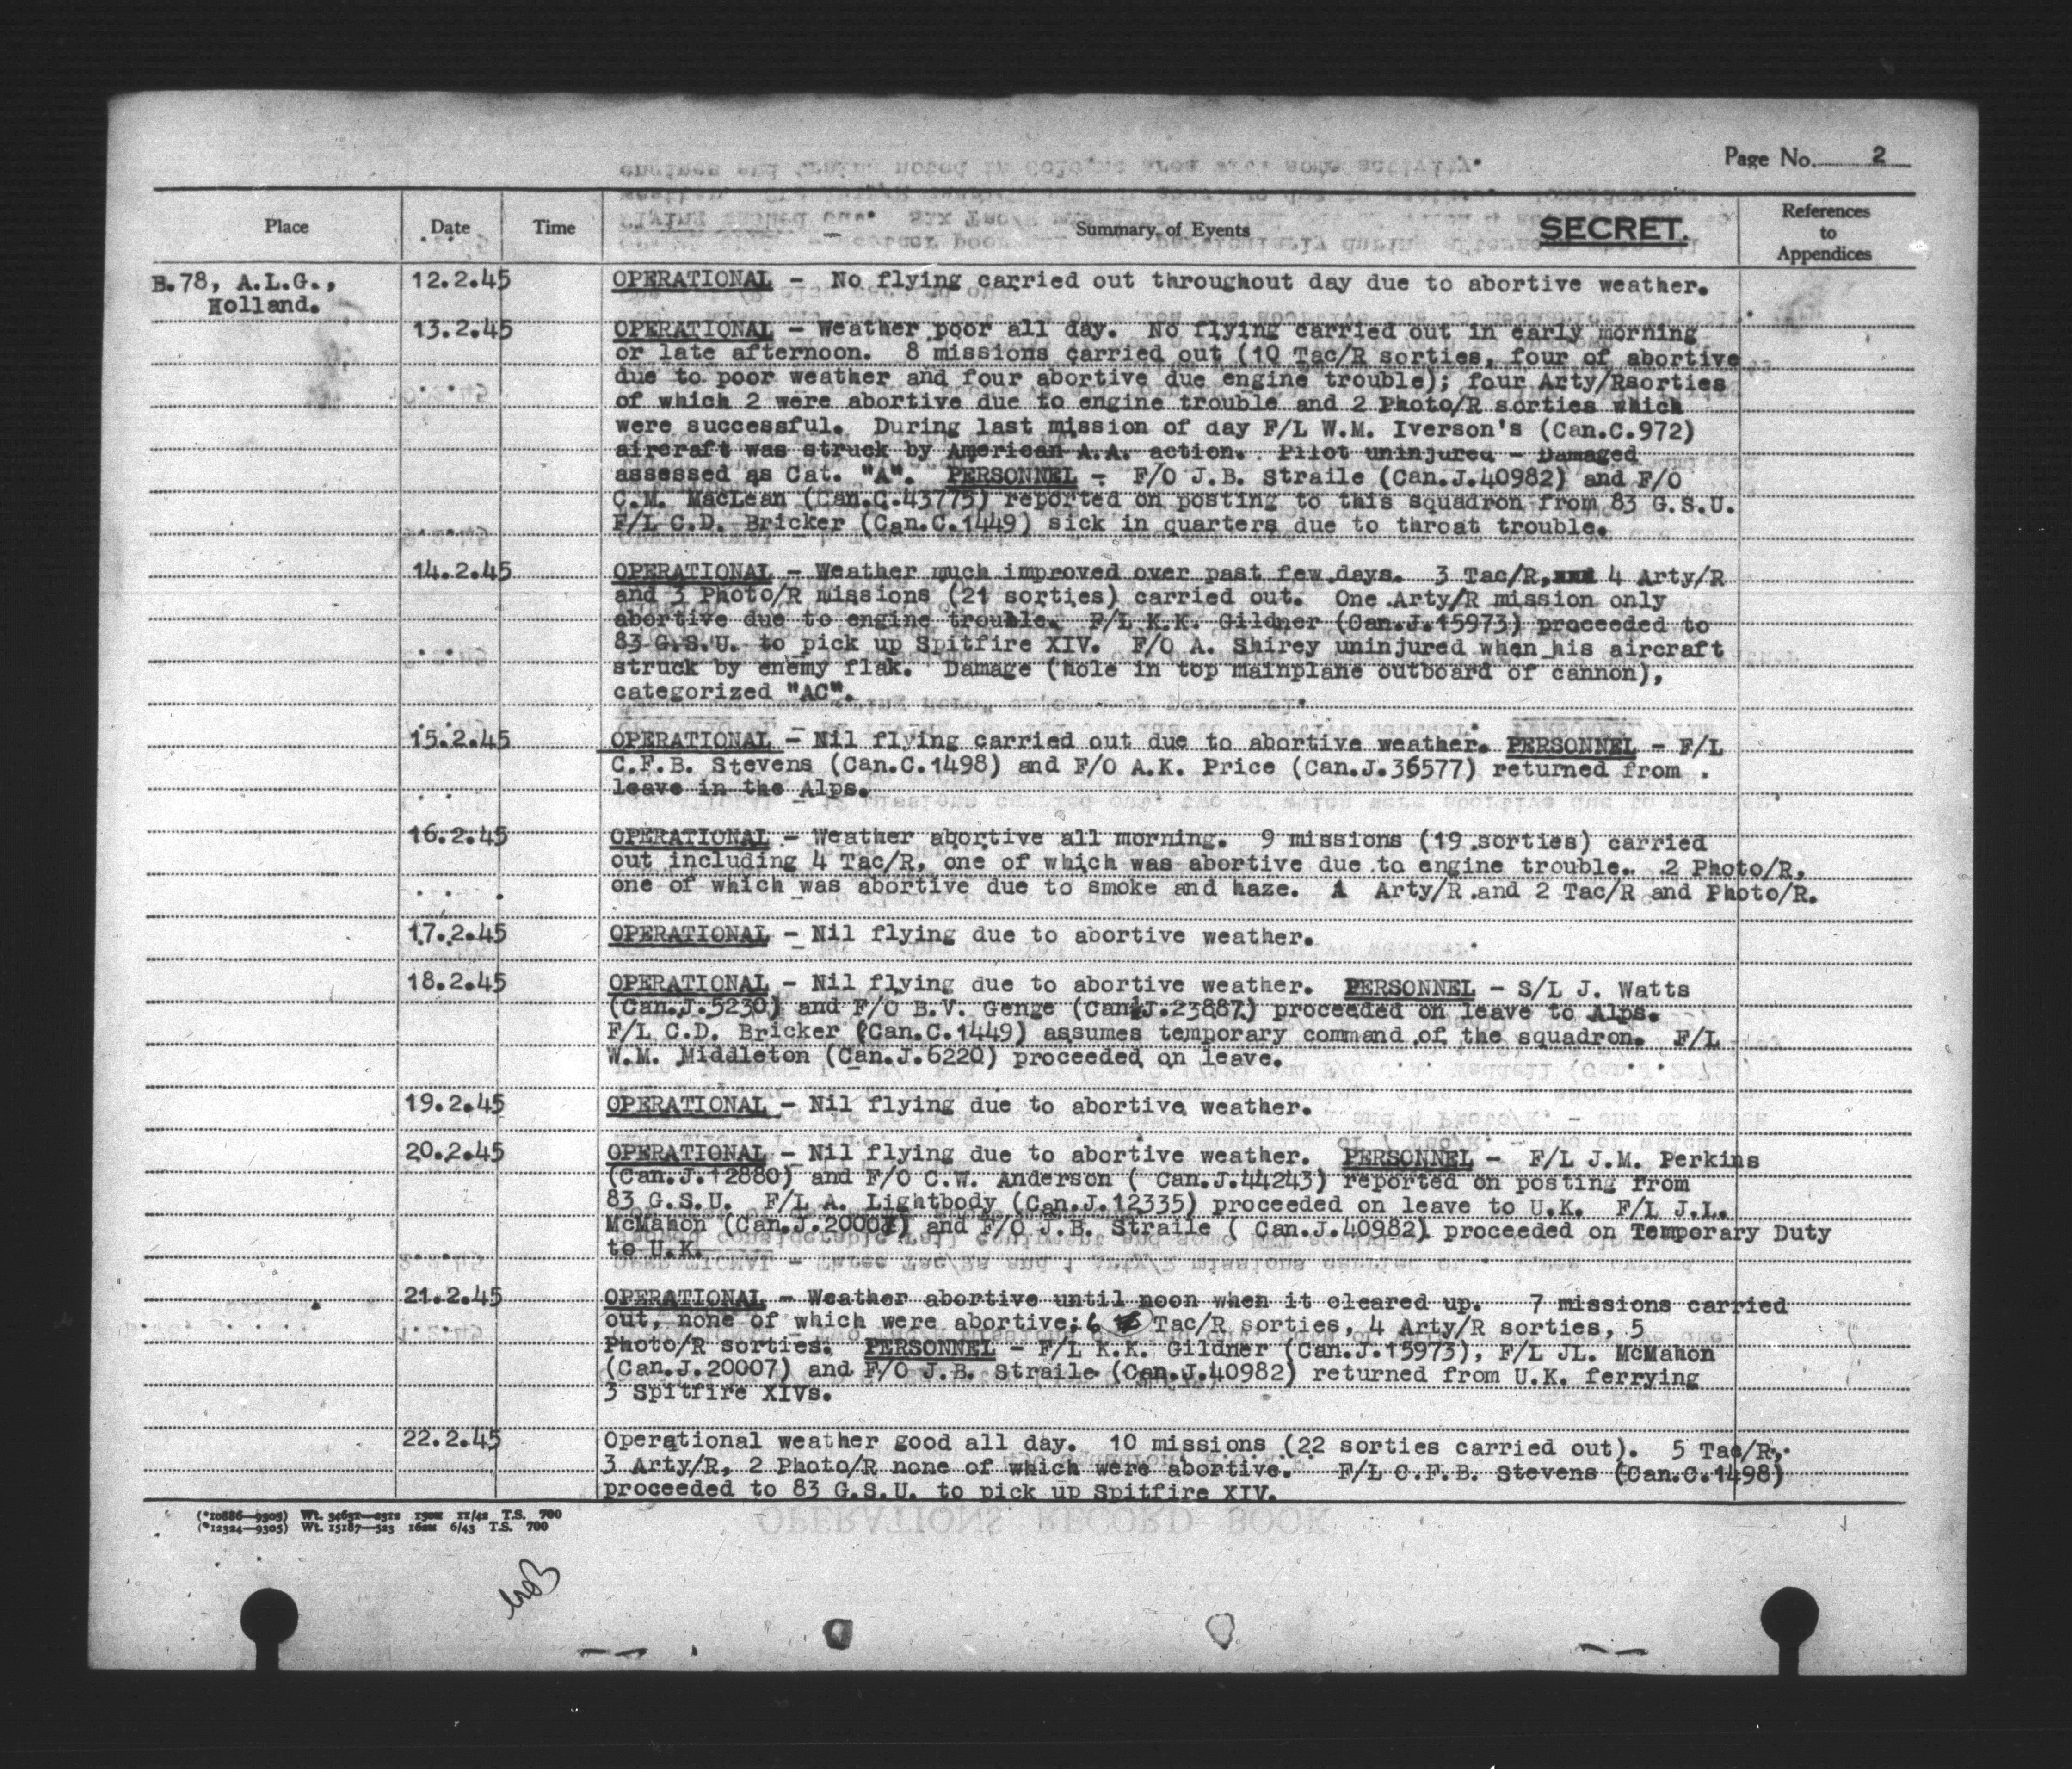 Page No. 2
Place
Date
Time
Summary of Events
SECRET.
References
to
Appendices
B.78, A.L.G.,
Holland.
12.2.45
OPERATIONAL - No flying carried out throughout day due to abortive weather.
13.2.45
OPERATIONAL - Weather poor all day. No flying carried out in early morning
or late afternoon. 8 missions carried out (10 Tac/R sorties, four of abortive
due to poor weather and four abortive due engine trouble); four Arty/Rsorties
of which 2 were abortive due to engine trouble and 2 Photo/R sorties which
were successful. During last mission of day F/L W.M. Iverson's (Can.C.972)
aircraft was struck by American A.A. action. Pilot uninjured - Damaged
assessed as Cat. "A". PERSONNEL - F/O J.B. Straile (Can.J.40982) and F/O
C.M. MacLean (Can.C.43775) reported on posting to this squadron from 83 G.S.U.
F/L C.D. Bricker (Can.C.1449) sick in quarters due to throat trouble.
14.2.45
OPERATIONAL - Weather much improved over past few days. 3 Tac/R, 4 Arty/R
and 3 Photo/R missions (21 sorties) carried out. One Arty/R mission only
abortive due to engine trouble. F/L K.K. Gildner (Can.J.15973) proceeded to
83 G.S.U. to pick up Spitfire XIV. F/O A. Shirey uninjured when his aircraft
struck by enemy flak. Damage (hole in top mainplane outboard of cannon),
categorized "AC".
15.2.45
OPERATIONAL - Nil flying carried out due to abortive weather. PERSONNEL - F/L
C.F.B. Stevens (Can.C.1498) and F/O A.K. Price (Can.J.36577) returned from
leave in the Alps.
16.2.45
OPERATIONAL - Weather abortive all morning. 9 missions (19 sorties) carried
out including 4 Tac/R, one of which was abortive due to engine trouble. 2 Photo/R,
one of which was abortive due to smoke and haze. 1 Arty/R and 2 Tac/R and Photo/R.
17.2.45
OPERATIONAL - Nil flying due to abortive weather.
18.2.45
OPERATIONAL - Nil flying due to abortive weather. PERSONNEL - S/L J. Watts
(Can.J.5230) and F/O B.V. Genge (Can.J.23887) proceeded on leave to Alps.
F/L C.D. Bricker (Can.C.1449) assumes temporary command of the squadron. F/L
W.M. Middleton (Can.J.6220) proceeded on leave.
19.2.45
OPERATIONAL - Nil flying due to abortive weather.
20.2.45
OPERATIONAL - Nil flying due to abortive weather. PERSONNEL - F/L J.M. Perkins
(Can.J.12880) and F/O C.W. Anderson ( Can.J.44243) reported on posting from
83 G.S.U. F/L A. Lightbody (Can.J.12335) proceeded on leave to U.K. F/L J.L.
McMahon (Can.J.20007) and F/O J.B. Straile ( Can.J.40982) proceeded on Temporary Duty
to U.K.
21.2.45
OPERATIONAL - Weather abortive until noon when it cleared up. 7 missions carried
out, none of which were abortive; 6 Tac/R sorties, 4 Arty/R sorties, 5
Photo/R sorties. PERSONNEL - F/L K.K. Gildner (Can.J.15973), F/L JL. McMahon
(Can.J.20007) and F/O J.B. Straile (Can.J.40982) returned from U.K. ferrying
3 Spitfire XIVs.
22.2.45
Operational weather good all day. 10 missions (22 sorties carried out). 5 Tac/R,
3 Arty/R, 2 Photo/R none of which were abortive. F/L C.F.B. Stevens (Can.C.1498)
proceeded to 83 G.S.U. to pick up Spitfire XIV.
(*10886—9305) Wt. 34631—2312 130M 11/42 T.S. 700
(*12324—9305) Wt. 15187—523 16M 6/43 T.S. 700
OPERATIONS RECORD BOOK